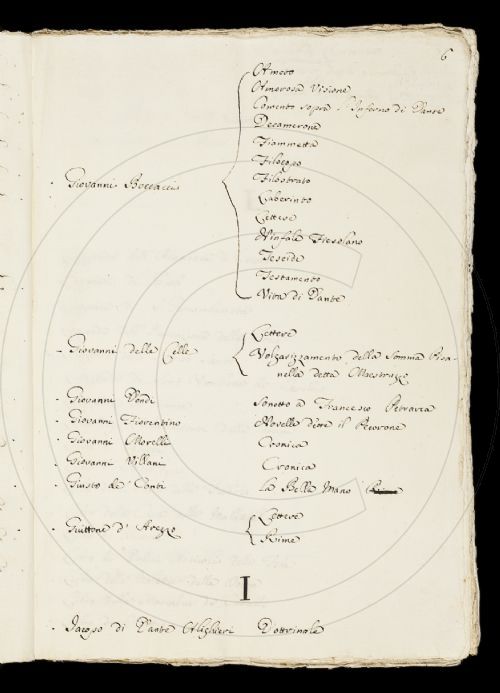 6
Ameto
Amorosa Visione
Comento sopra l'Inferno di Dante
Decamerone
Fiammetta
Filocopo
. Giovanni Boccacci
Filostrato
Laberinto
Lettere
Ninfale Fiesolano
Teseide
Testamento
Vita di Dante
. Giovanni dalle Celle
Lettere
Volgarizzamento della Somma Pisa-
nella detta Maestruzzo
. Giovanni Dondi Sonetto a Francesco Petrarca
. Giovanni Fiorentino Novelle dette il Pecorone
. Giovanni Morelli Cronica
. Giovanni Villani Cronica
. Giusto de' Conti La Bella Mano
. Guittone d' Arezzo
Lettere
Rime
I
. Jacopo di Dante Alighieri Dottrinale